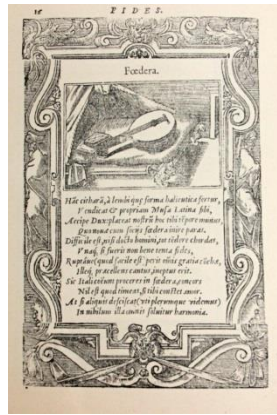 16
FIDES.
Fœdera.
Hãc citharã, à lembi quę forma halieutica fertur,
Vendicat & propriam Musa Latina sibi,
Accipe Dux: placeat nostrũ hoc tibi tẽpore munus,
Quo noua cum socijs fœdera inire paras.
Difficile est, nisi docto homini, tot tẽdere chordas,
Vnaq; si fuerit non bene tenta fides,
Ruptáue (quod facile est) perit oĩnis gratia cõchæ,
Illeq́; præcellens cantus, ineptus erit.
Sic Itali coëunt proceres in fœdera, concors
Nil est quod timeas, si tibi constet amor.
At si aliquis desciscat (vti plerumque videmus)
In nihilum illa omnis soluitur harmonia.